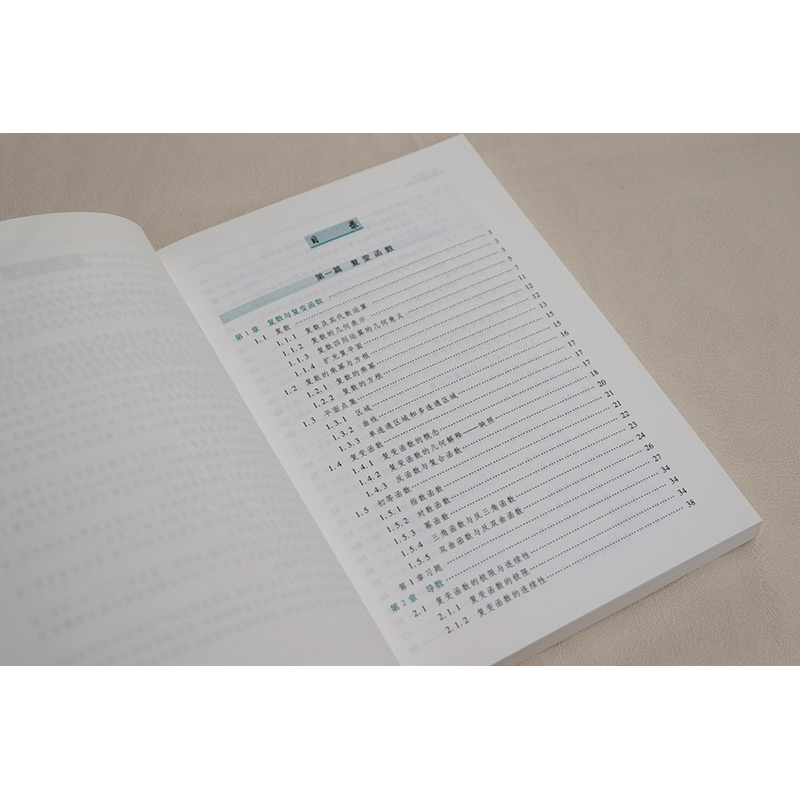 目 录
第一篇 复变函数
第1章 复数与复变函数 3
1.1 复数 3
1.1.1 复数及其代数运算 3
1.1.2 复数的几何表示 5
1.1.3 复数四则运算的几何意义 7
1.1.4 扩充复平面 11
1.2 复数的乘幂与方根 12
1.2.1 复数的乘幂 12
1.2.2 复数的方根 13
1.3 平面点集 15
1.3.1 区域 15
1.3.2 曲线 16
1.3.3 单连通区域和多连通区域 17
1.4 复变函数 17
1.4.1 复变函数的概念 18
1.4.2 复变函数的几何解释——映照 20
1.4.3 反函数与复合函数 21
1.5 初等函数 21
1.5.1 指数函数 22
1.5.2 对数函数 23
1.5.3 幂函数 24
1.5.4 三角函数与反三角函数 26
1.5.5 双曲函数与反双曲函数 27
第1章习题 34
第2章 导数 34
2.1 复变函数的极限与连续性 34
2.1.1 复变函数的极限 34
2.1.2 复变函数的连续性 38